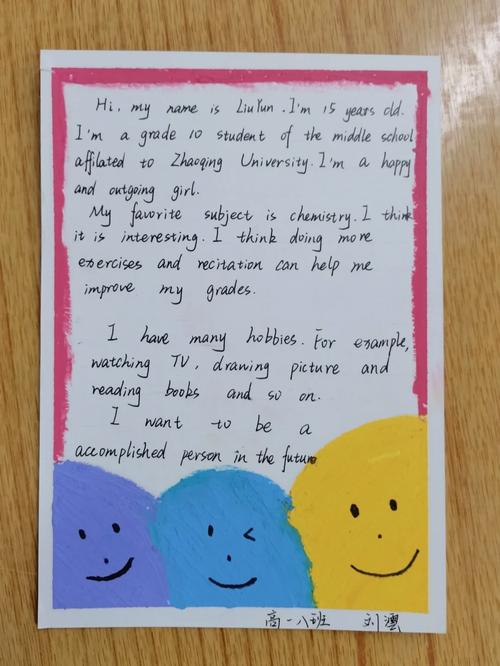 Hi, my name is LiuYun. I'm 15 years old.
I'm a grade 10 student of the middle school
affilated to Zhaoqing University. I'm a happy
and outgoing girl.
My favorite subject is chemistry. I think
it is interesting. I think doing more
exercises and recitation can help me
improve my grades.
I have many hobbies. For example,
watching TV, drawing picture and
reading books and so on.
I want to be a
accomplished person in the future
高一八班 刘